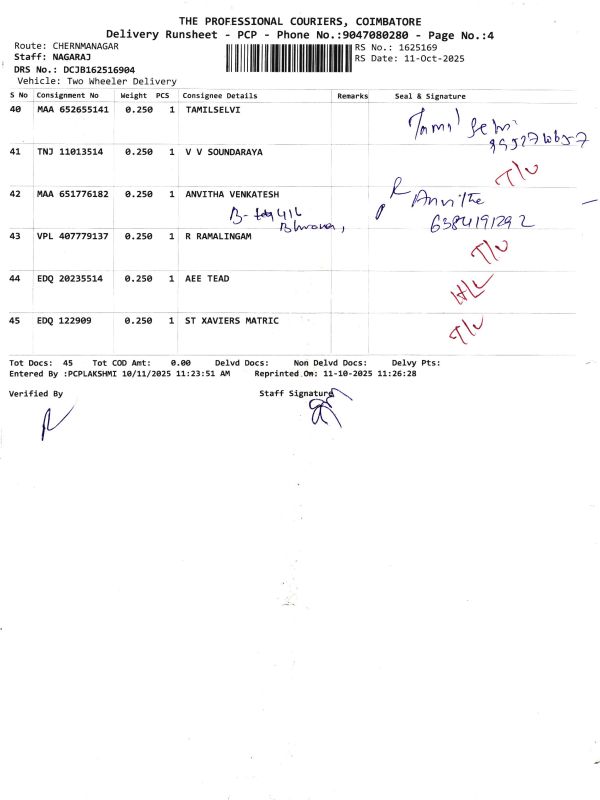 THE PROFESSIONAL COURIERS, COIMBATORE
Delivery Runsheet - PCP - Phone No.:9047080280 - Page No.:4
Route: CHERNMANAGAR
RS No.: 1625169
Staff: NAGARAJ
RS Date: 11-Oct-2025
DRS No.: DCJB162516904
Vehicle: Two Wheeler Delivery
S No Consignment No Weight PCS Consignee Details Remarks Seal & Signature
40 MAA 652655141 0.250 1 TAMILSELVI
Tamil Selvi
41 TNJ 11013514 0.250 1 V V SOUNDARAYA
T/V
42 MAA 651776182 0.250 1 ANVITHA VENKATESH
Anvitha
6384191292
B- 416
43 VPL 407779137 0.250 1 R RAMALINGAM
T/V
44 EDQ 20235514 0.250 1 AEE TEAD
45 EDQ 122909 0.250 1 ST XAVIERS MATRIC
T/V
Tot Docs: 45 Tot COD Amt: 0.00 Delvd Docs: Non Delvd Docs: Delvy Pts:
Entered By :PCPLAKSHMI 10/11/2025 11:23:51 AM Reprinted On: 11-10-2025 11:26:28
Verified By Staff Signature